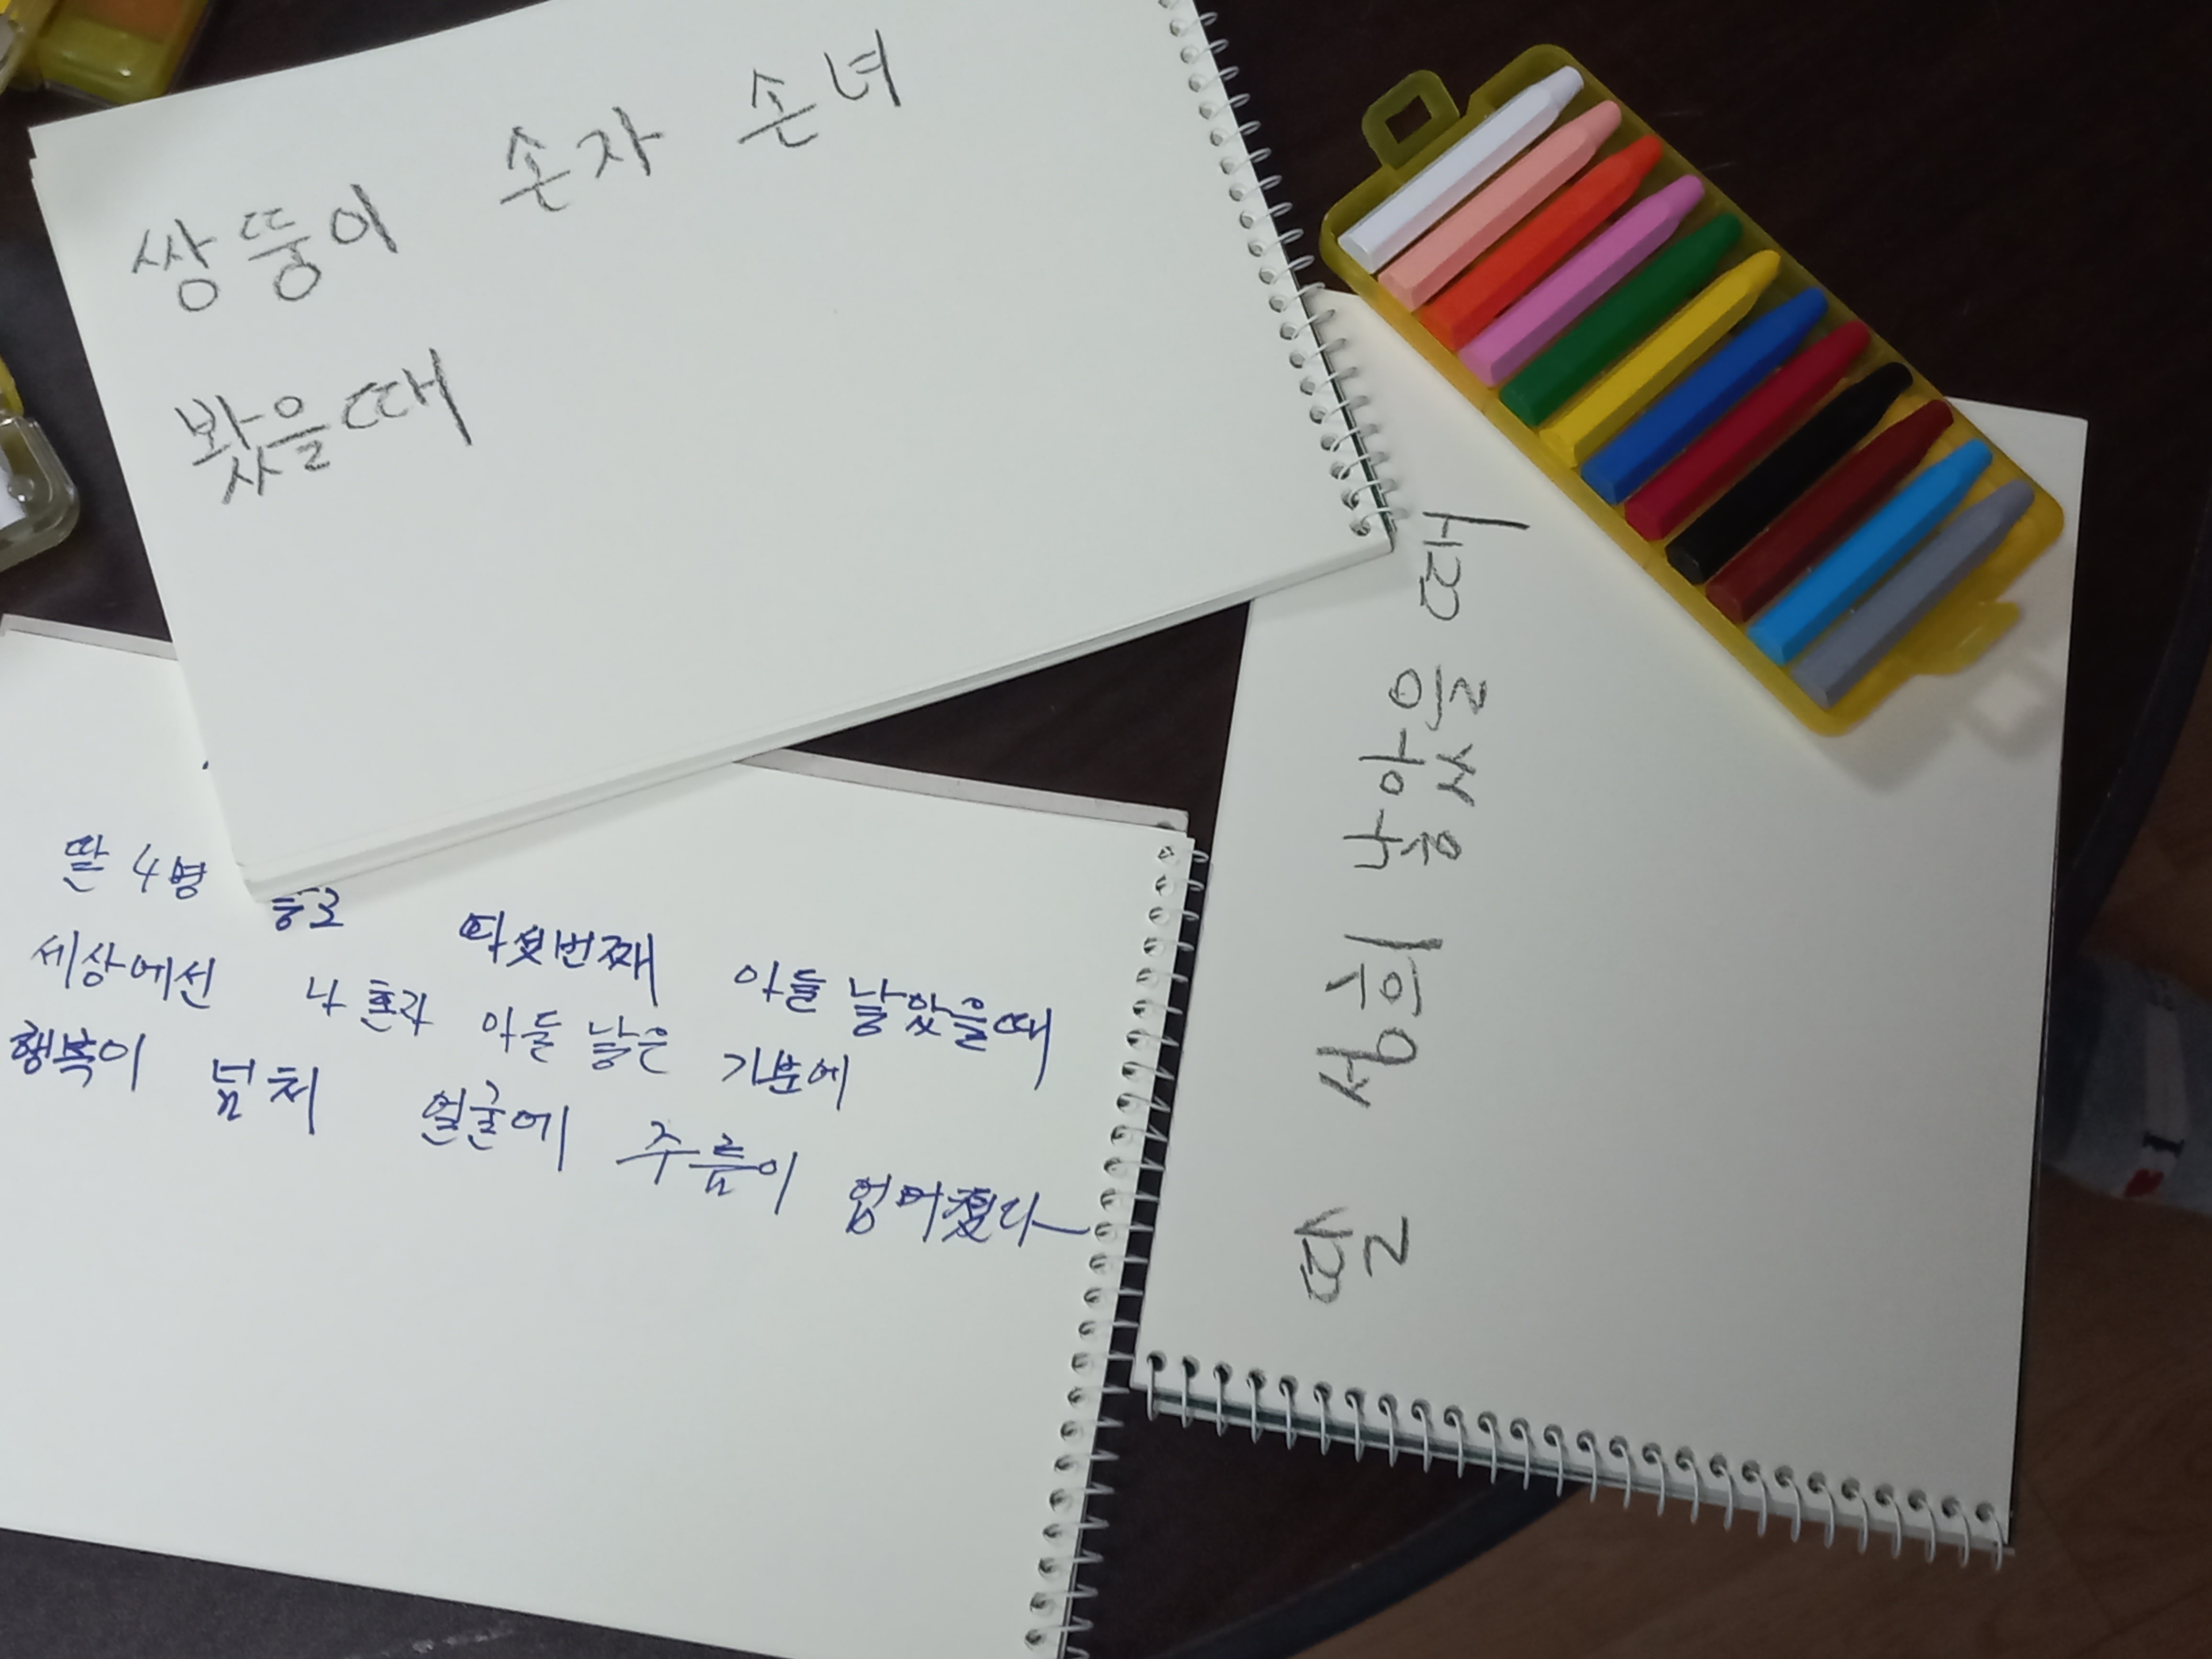 쌍뚱이 손자 손녀
봤을때
딸 4명 다섯번째 아들 낳았을때
세상에선 나 혼자 아들 낳은 기분에
행복이 넘처 얼굴에 주름이 없어졌다
딸 성희 낳았을 때